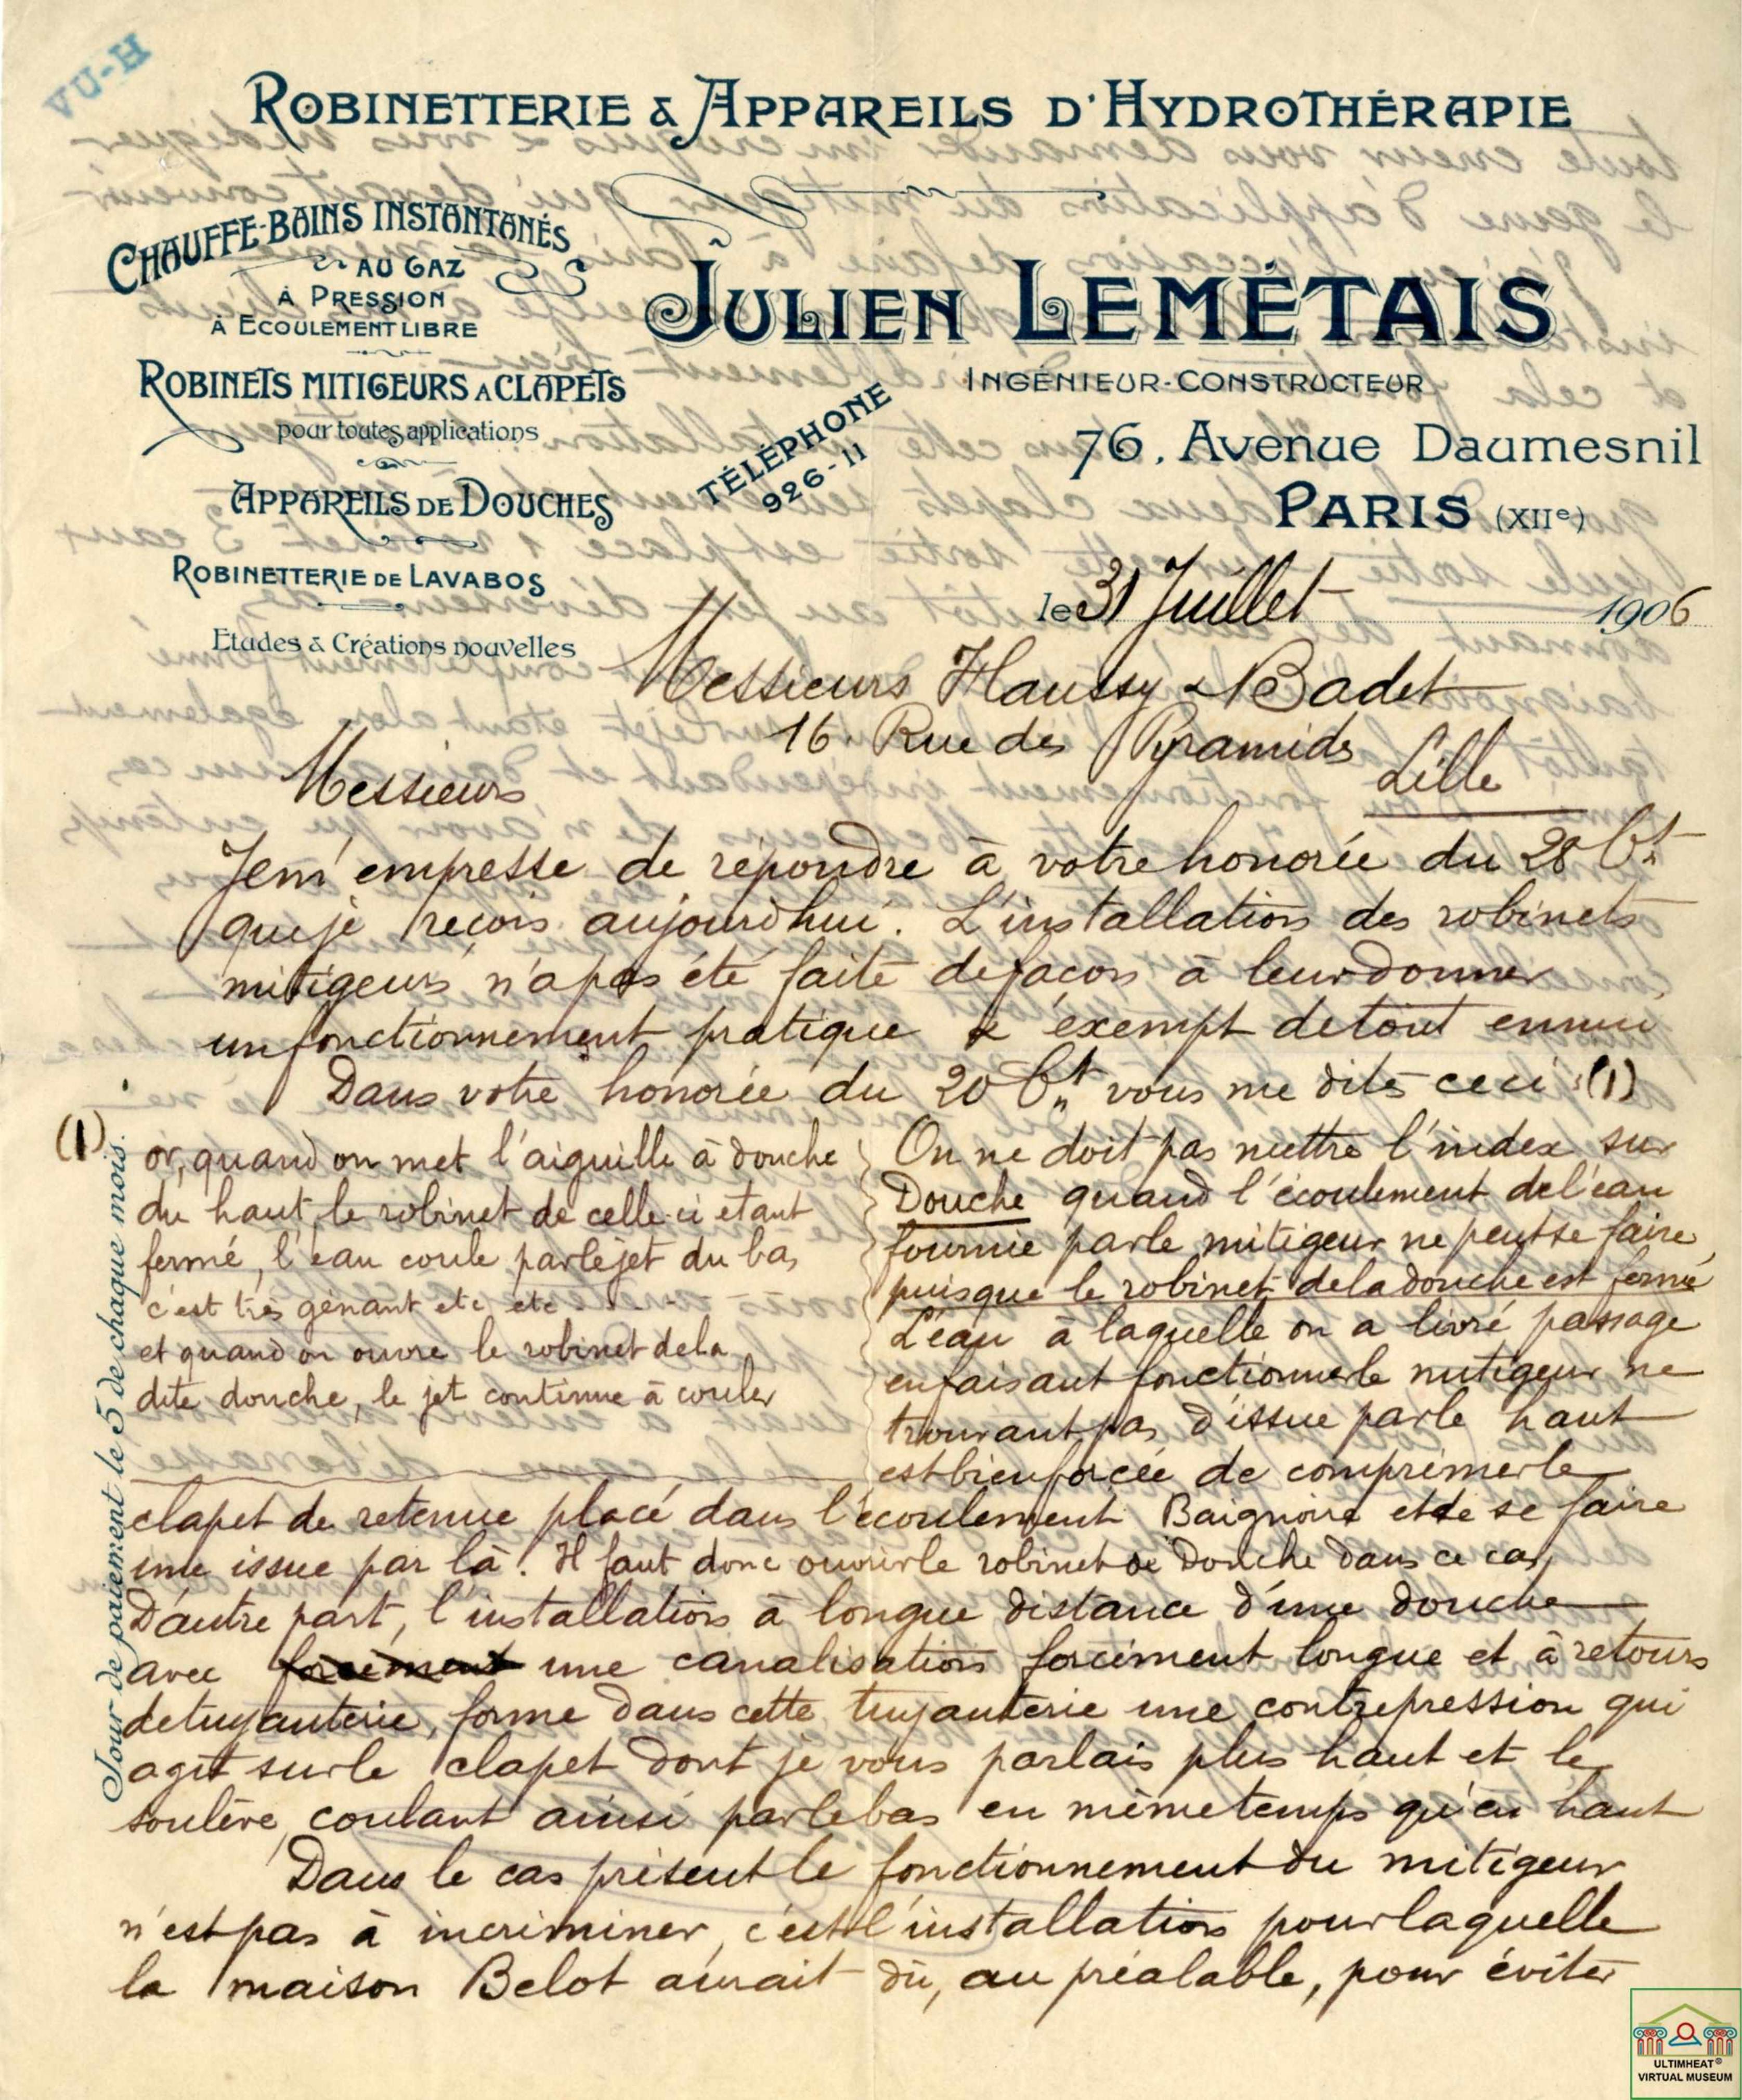 VU-H
ROBINETTERIE & APPAREILS D'HYDROTHÉRAPIE
CHAUFFE-BAINS INSTANTANÉS
AU GAZ
À PRESSION
À ECOULEMENT LIBRE
ROBINETS MITIGEURS A CLAPETS
pour toutes applications
APPAREILS DE DOUCHES
ROBINETTERIE DE LAVABOS
Etudes & Créations nouvelles
JULIEN LEMÉTAIS
INGÉNIEUR-CONSTRUCTEUR
TÉLÉPHONE
926-11
76, Avenue Daumesnil
PARIS (XIIe)
le 31 Juillet 1906
Messieurs Haussy & Badet
16. Rue des Pyramides
Lille
Messieurs
Je m'empresse de répondre à votre honorée du 28 Ct
que je reçois aujourd'hui. L'installation des robinets
mitigeurs n'a pas été faite de façon à leur donner
un fonctionnement pratique & exempt de tout ennui
Dans votre honorée du 20 Ct vous me dites ceci : (1)
(1) or, quand on met l'aiguille à douche
du haut, le robinet de celle-ci etant
fermé, l'eau coule par le jet du bas,
c'est très gênant etc etc . . . .
et quand on ouvre le robinet de la
dite douche, le jet continue à couler
On ne doit pas mettre l'index sur
Douche quand l'écoulement de l'eau
fournie par le mitigeur ne peut se faire,
puisque le robinet de la douche est fermé
L'eau à laquelle on a livré passage
en faisant fonctionner le mitigeur ne
trouvant pas d'issue par le haut
est bien forcée de comprimer le
clapet de retenue placé dans l'écoulement Baignoire et de se faire
une issue par là. Il faut donc ouvrir le robinet de Douche dans ce cas,
D'autre part, l'installation à longue distance d'une douche
avec forcément une canalisation forcément longue et à retours
de tuyauterie, forme dans cette tuyauterie une contrepression qui
agit sur le clapet dont je vous parlais plus haut et le
soulève, coulant ainsi par le bas en même temps qu'en haut
Dans le cas présent le fonctionnement du mitigeur
n'est pas à incriminer, c'est l'installation pour laquelle
la maison Belot aurait dû, au préalable, pour éviter
Jour de paiement le 5 de chaque mois.
ULTIMHEAT®
VIRTUAL MUSEUM